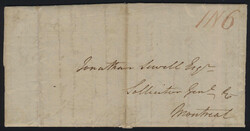 1N6
Jonathan Sewell Esqr
Sollicitor Genl &
Montreal